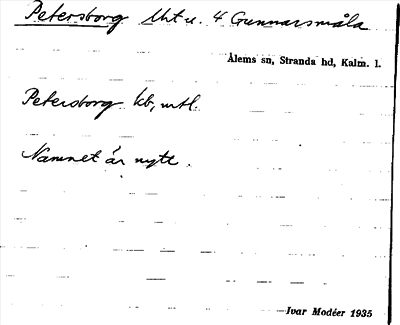 Petersborg Uht u. 4 Gunnarsmåla
Ålems sn, Stranda hd, Kalm. l.
Petersborg kb, mtl.
Namnet är nytt.
Ivar Modéer 1935